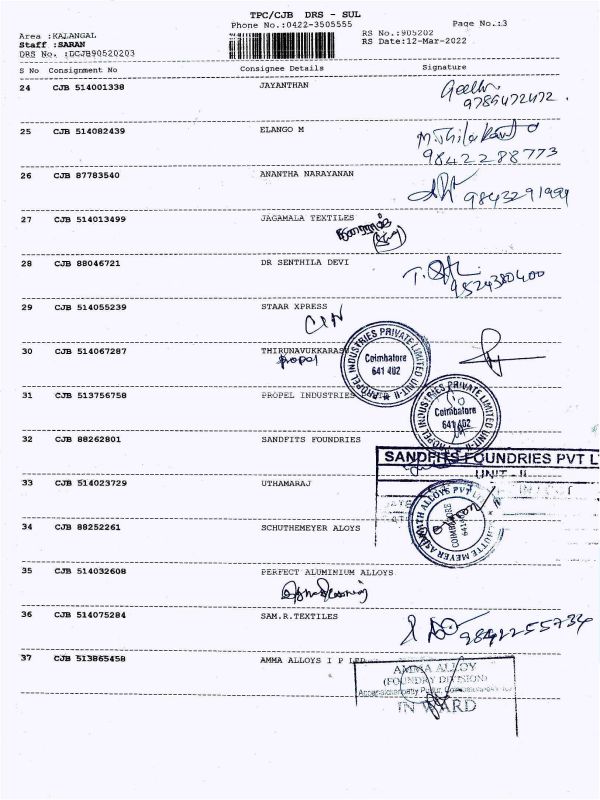 TPC/CJB DRS - SUL
Phone No.:0422-3505555 Page No.:3
Area :KALANGAL RS No.:905202
Staff :SARAN RS Date:12-Mar-2022
DRS No. :DCJB90520203
S No Consignment No Consignee Details Signature
24 CJB 514001338 JAYANTHAN
9789472472.
25 CJB 514082439 ELANGO M
9842288773
26 CJB 87783540 ANANTHA NARAYANAN
9843291999
27 CJB 514013499 JAGAMALA TEXTILES
28 CJB 88046721 DR SENTHILA DEVI
9524380400
29 CJB 514055239 STAAR XPRESS
30 CJB 514067287 THIRUNAVUKKARAS
propel
PROPEL INDUSTRIES PRIVATE LIMITED UNIT-II
Coimbatore
641 402
31 CJB 513756758 PROPEL INDUSTRIES
PROPEL INDUSTRIES PRIVATE LIMITED UNIT-II
Coimbatore
641 402
32 CJB 88262801 SANDFITS FOUNDRIES
SANDFITS FOUNDRIES PVT L
UNIT - II
33 CJB 514023729 UTHAMARAJ
34 CJB 88252261 SCHUTHEMEYER ALOYS
35 CJB 514032608 PERFECT ALUMINIUM ALLOYS
36 CJB 514075284 SAM.R.TEXTILES
9842255734
37 CJB 513865458 AMMA ALLOYS I P LTD
AMMA ALLOY
(FOUNDRY DIVISION)
IN WARD